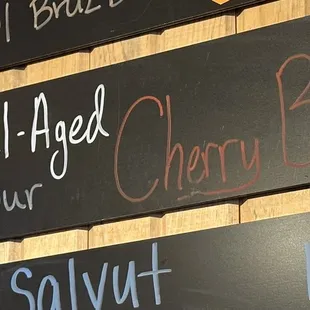 l Bruz
l-Aged Cherry B
ur
Salvut